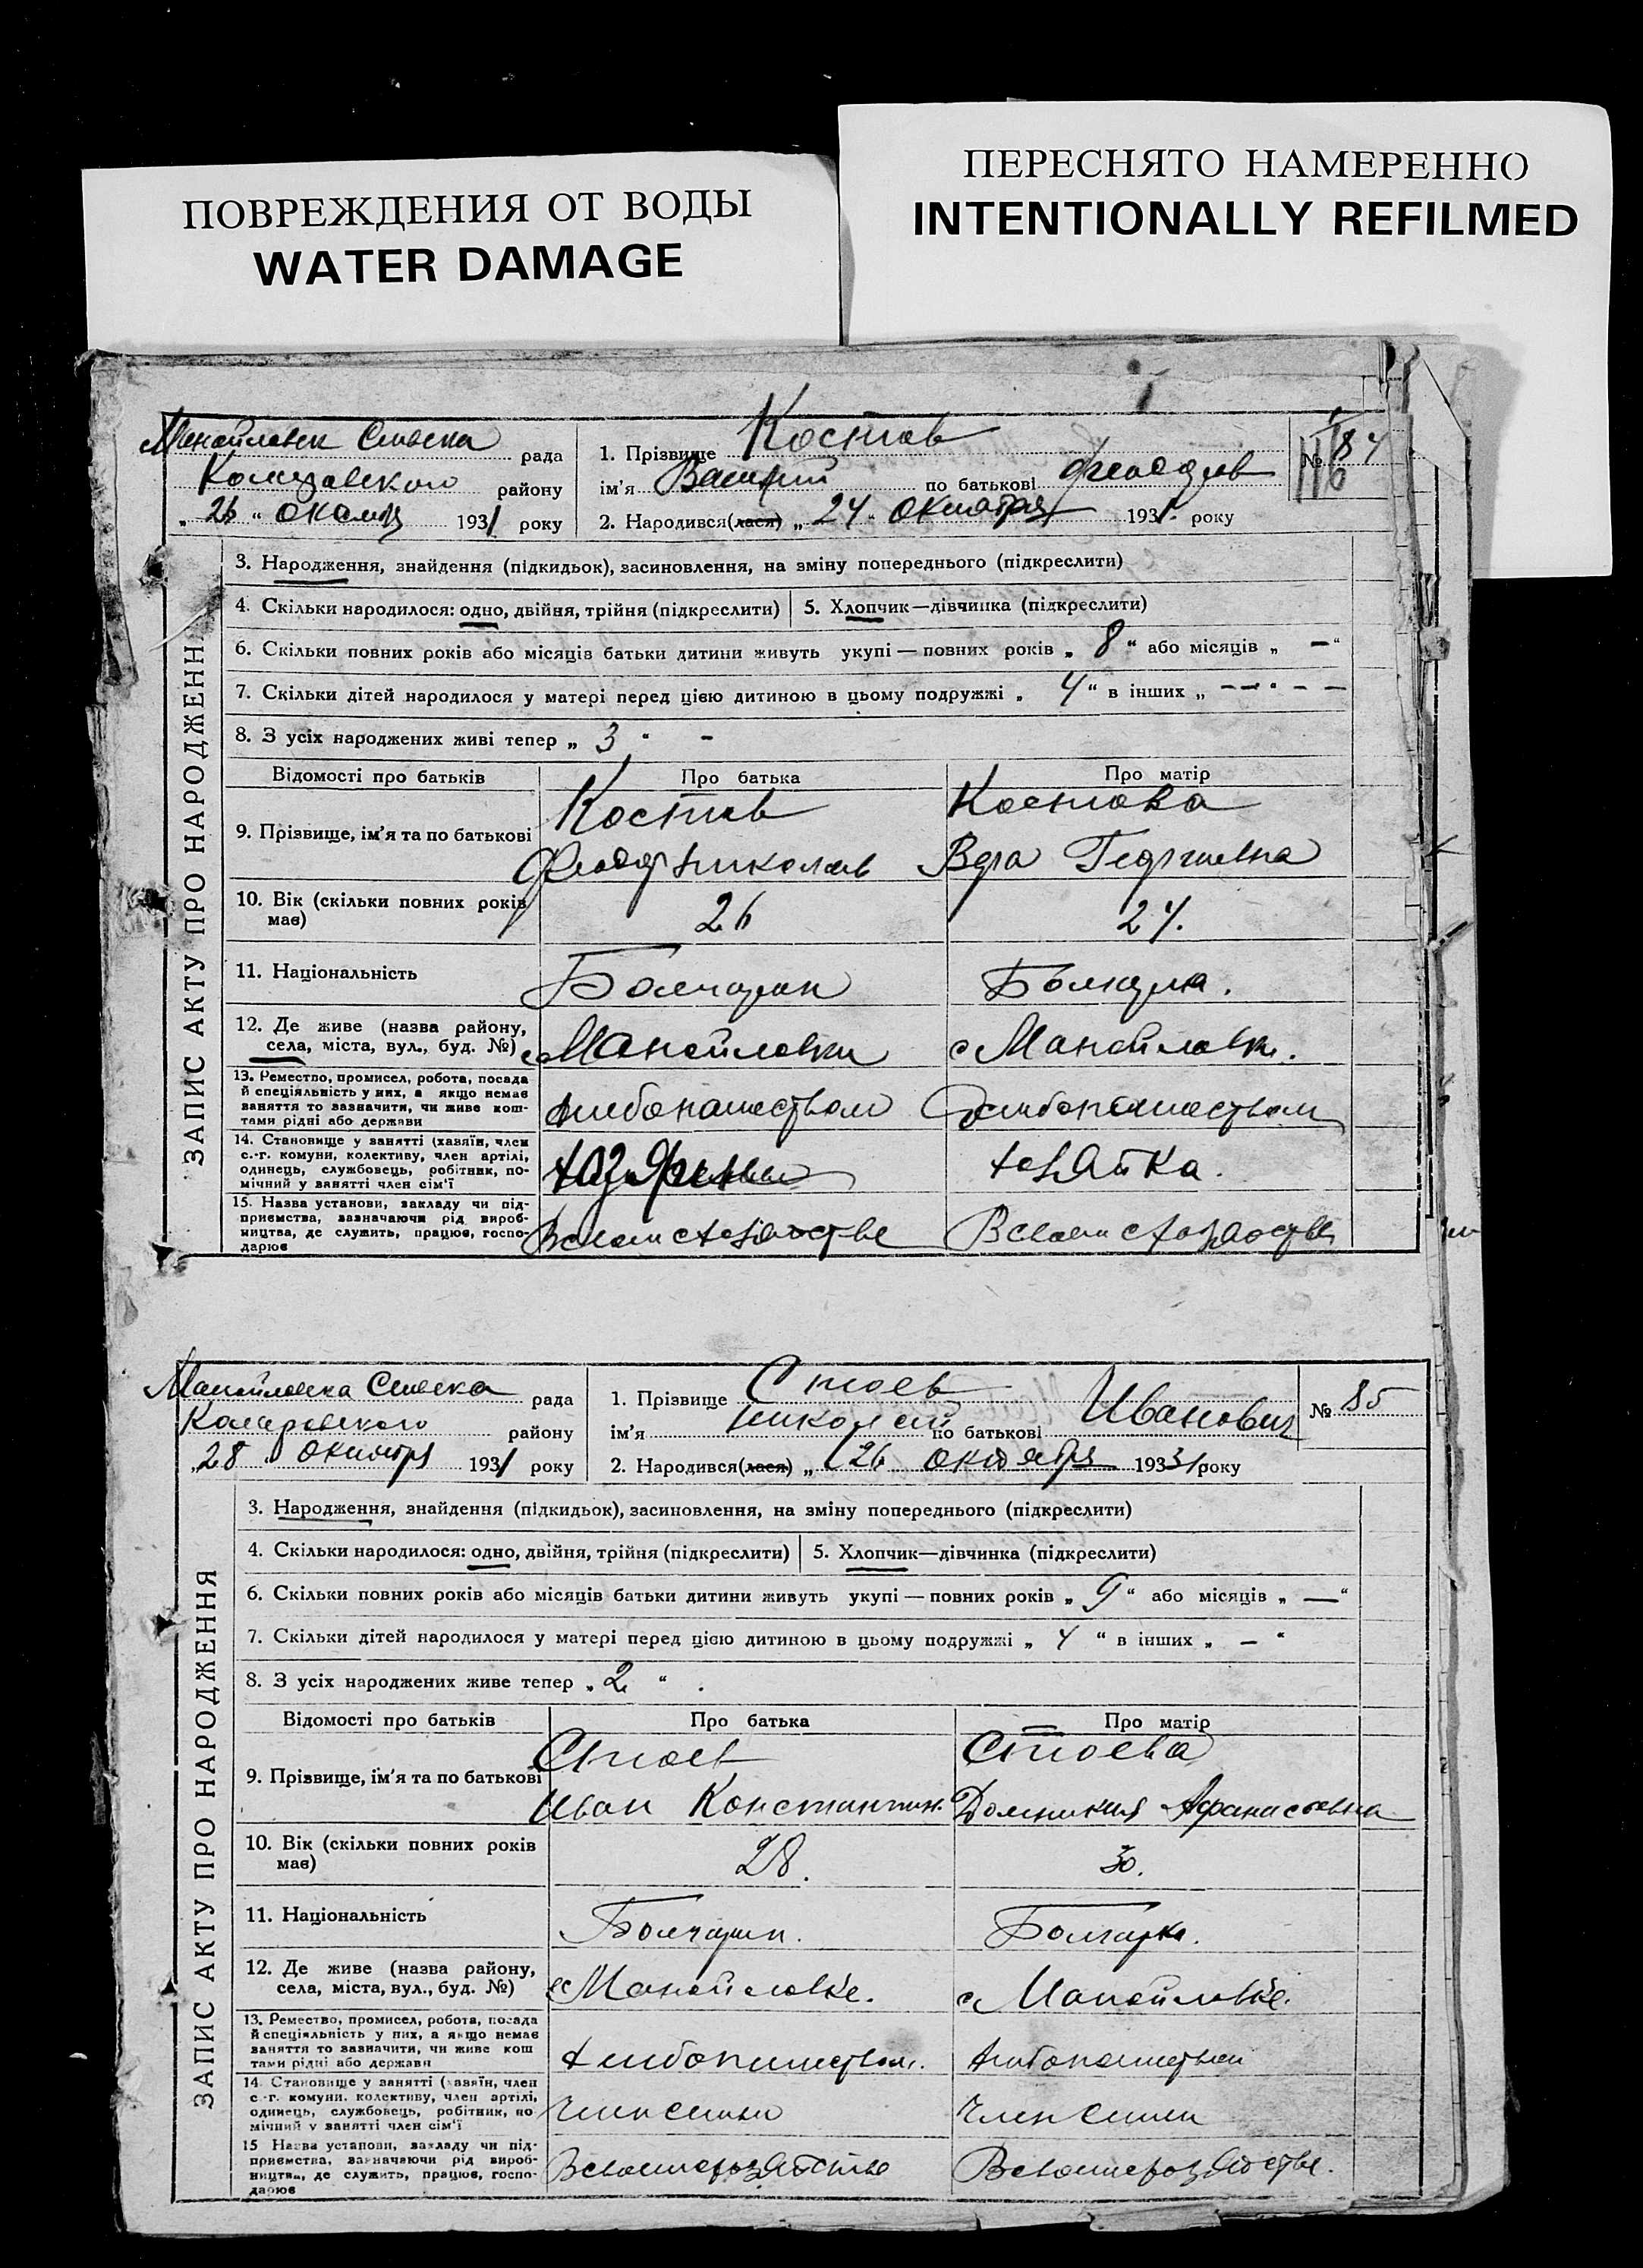 ПОВРЕЖДЕНИЯ ОТ ВОДЫ
WATER DAMAGE
ПЕРЕСНЯТО НАМЕРЕННО
INTENTIONALLY REFILMED
ЗАПИС АКТУ ПРО НАРОДЖЕННЯ
рада
району
„ 26 “ 1931 року
1. Прізвище Костов
ім'я Василий по батькові
2. Народився(лася) „ 24 “ Октября 1931 року
№ 84
3. Народження, знайдення (підкидьок), засиновлення, на зміну попереднього (підкреслити)
4. Скільки народилося: одно, двійня, трійня (підкреслити)
5. Хлопчик—дівчинка (підкреслити)
6. Скільки повних років або місяців батьки дитини живуть укупі — повних років „ 8 “ або місяців „ — “
7. Скільки дітей народилося у матері перед цією дитиною в цьому подружжі „ 4 “ в інших „ — — — —
8. З усіх народжених живі тепер „ 3 “ -
Відомості про батьків Про батька Про матір
9. Прізвище, ім'я та по батькові
Костов Костова
Вера Георгиевна
10. Вік (скільки повних років має) 26 27.
11. Національність Болгарин
12. Де живе (назва району, села, міста, вул., буд. №)
с Манойловки с Манойловки.
13. Ремество, промисел, робота, посада
й спеціяльність у них, а якщо немає
заняття то зазначити, чи живе кош-
тами рідні або держави
14. Становище у занятті (хазяїн, член
с.-г. комуни, колективу, член артілі,
одинець, службовець, робітник, по-
мічний у занятті член сім'ї
хозяйка.
15. Назва установи, закладу чи під-
приємства, зазначаючи рід вироб-
ництва, де служить, працює, госпо-
дарює
ЗАПИС АКТУ ПРО НАРОДЖЕННЯ
рада
району
„ 28 “ 1931 року
1. Прізвище Стоев
ім'я Николай по батькові Иванович
2. Народився(лася) „ 26 Октября 1931 року
№ 85
3. Народження, знайдення (підкидьок), засиновлення, на зміну попереднього (підкреслити)
4. Скільки народилося: одно, двійня, трійня (підкреслити)
5. Хлопчик—дівчинка (підкреслити)
6. Скільки повних років або місяців батьки дитини живуть укупі — повних років „ 9 “ або місяців „ — “
7. Скільки дітей народилося у матері перед цією дитиною в цьому подружжі „ 4 “ в інших „ — “
8. З усіх народжених живе тепер „ 2 “ .
Відомості про батьків Про батька Про матір
9. Прізвище, ім'я та по батькові
Стоев Стоева
Иван Константин. Домникия Афанасьевна
10. Вік (скільки повних років має) 28. 30.
11. Національність Болгарин. Болгарка.
12. Де живе (назва району, села, міста, вул., буд. №)
с Манойловке. с Манойловке.
13. Ремество, промисел, робота, посада
й спеціяльність у них, а якщо немає
заняття то зазначити, чи живе кош
тами рідні або держави
14. Становище у занятті (хазяїн, член
с.-г. комуни, колективу, член артілі,
одинець, службовець, робітник, по
мічний у занятті член сім'ї
Член семьи Член семьи
15 Назва установи, закладу чи під-
приємства, зазначаючи рід вироб-
ництва, де служить, працює, госпо-
дарює